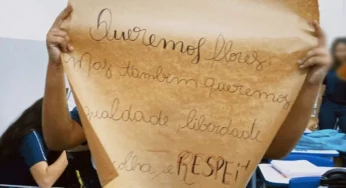 Queremos flores.
Mas também queremos
igualdade, liberdade
RESPEIT